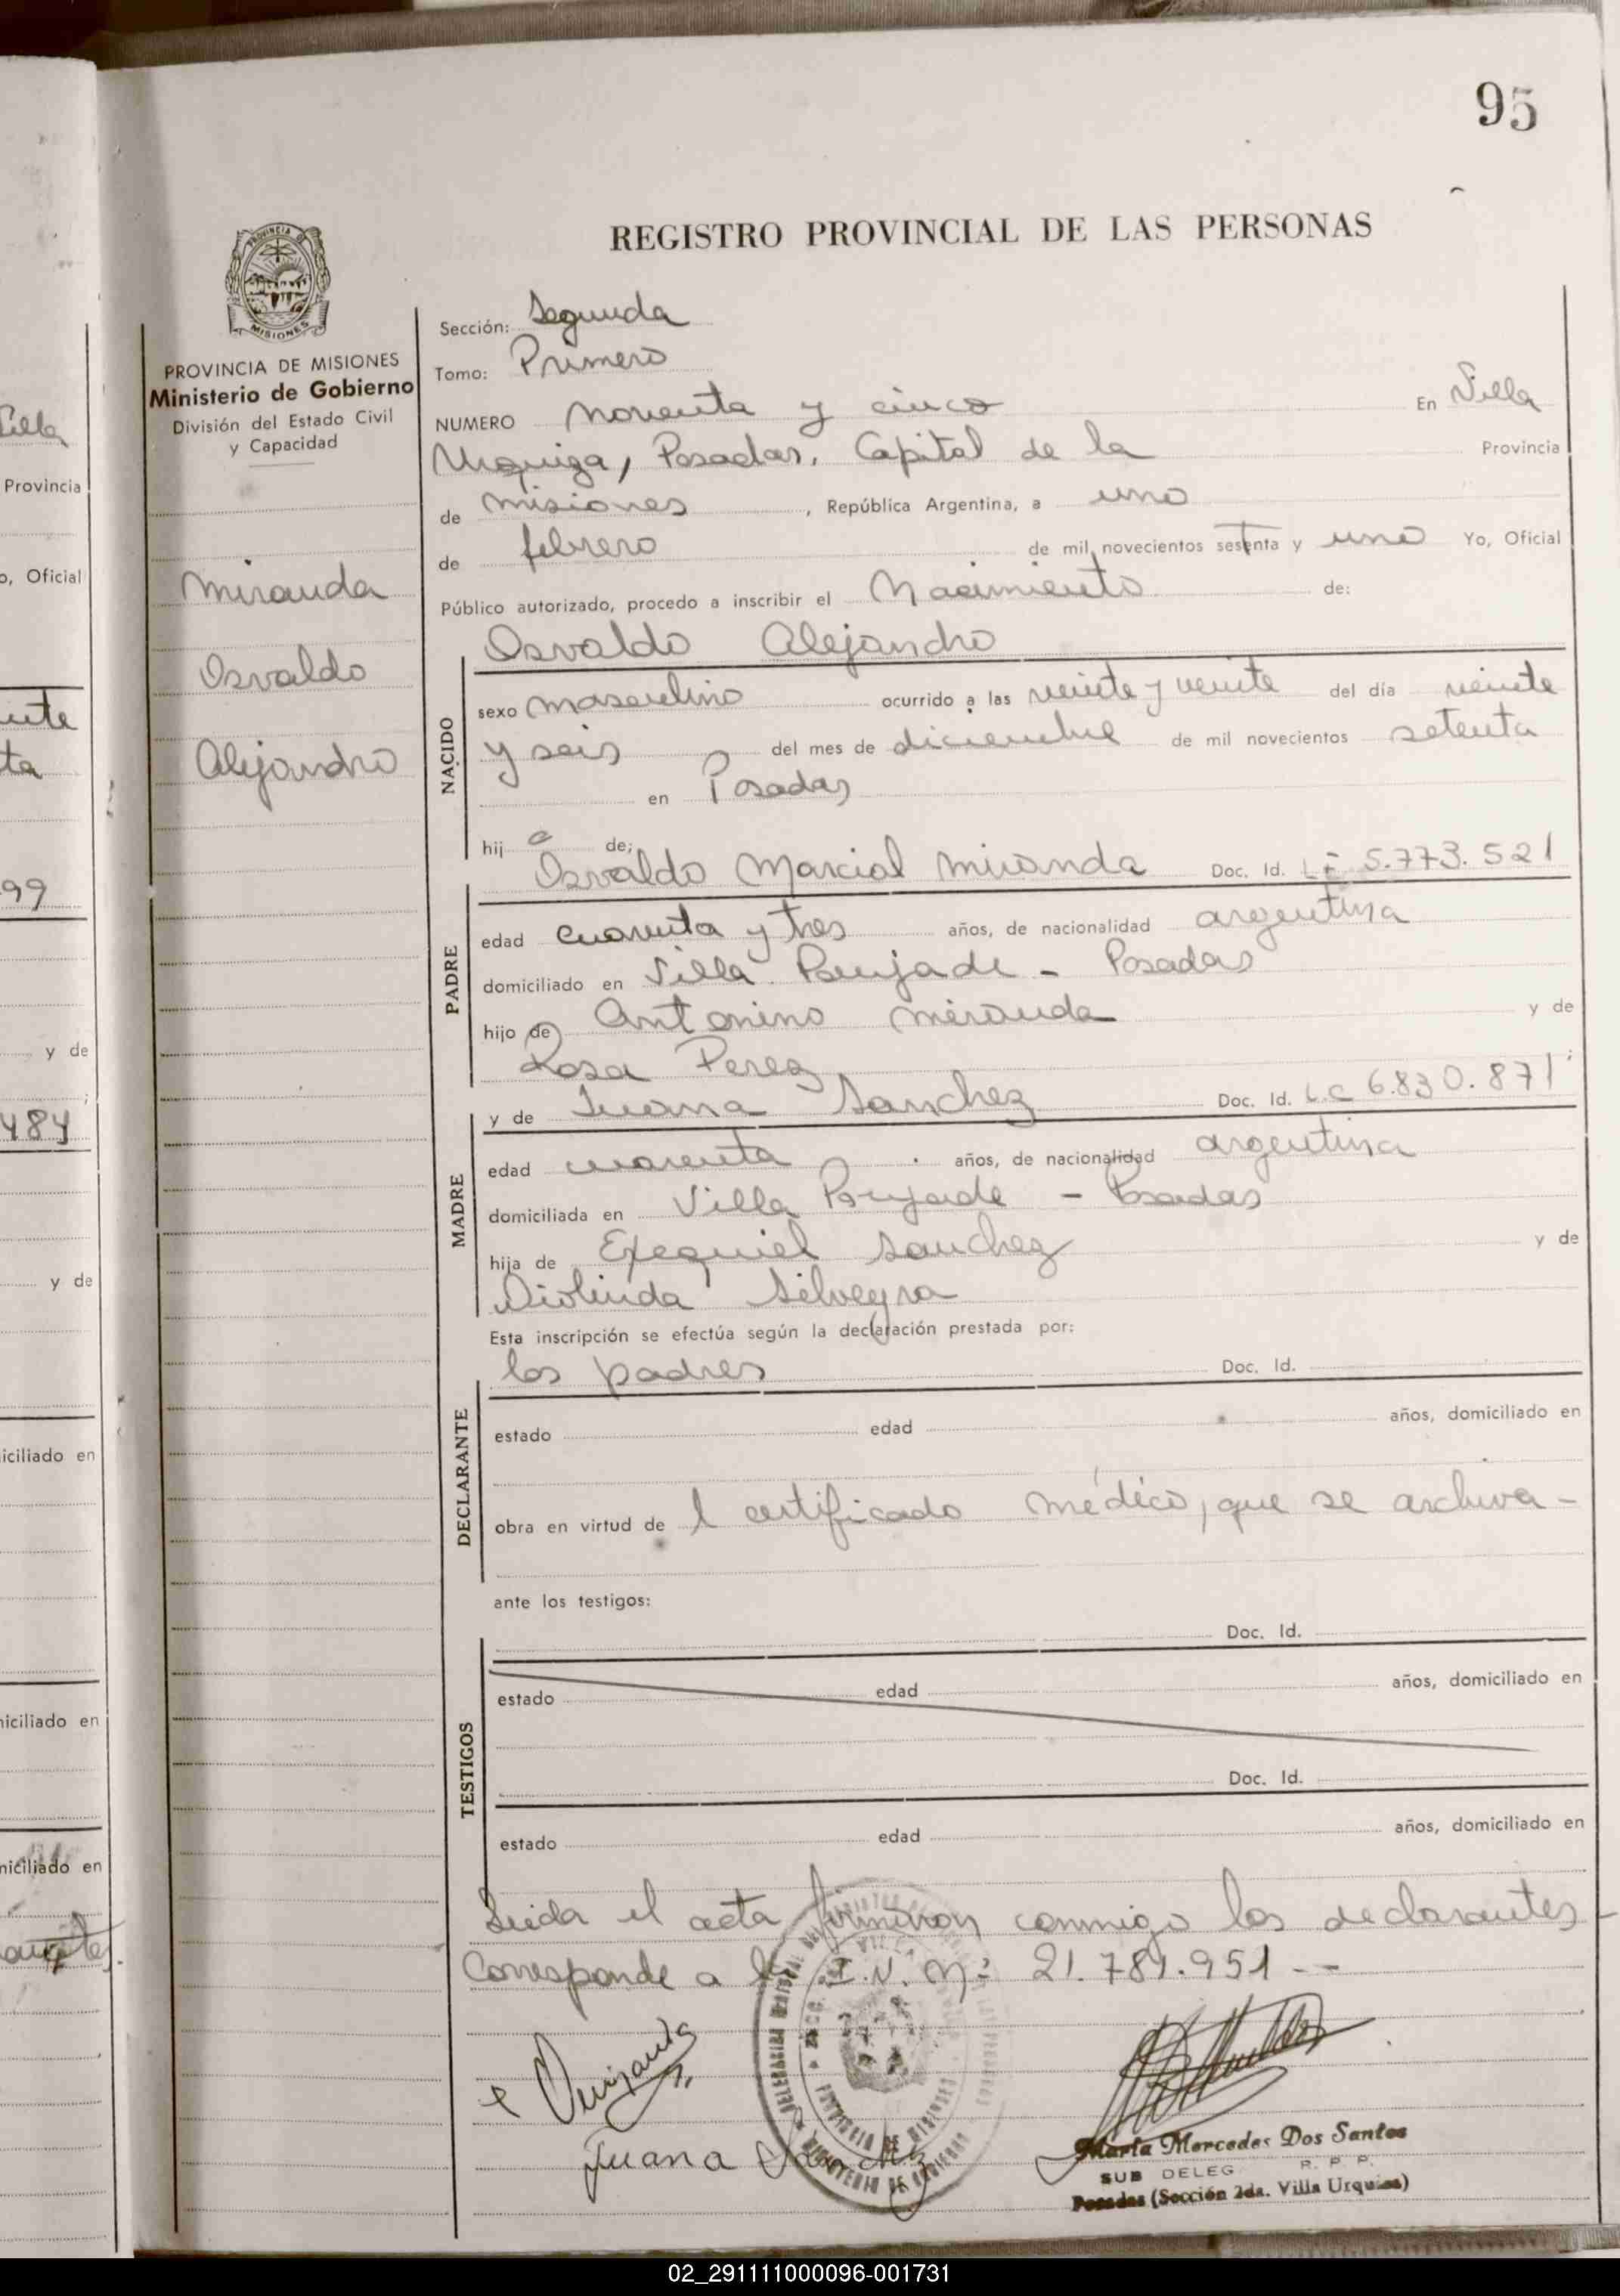 95
REGISTRO PROVINCIAL DE LAS PERSONAS
PROVINCIA DE
MISIONES
PROVINCIA DE MISIONES
Ministerio de Gobierno
División del Estado Civil
y Capacidad
Miranda
Osvaldo
Alejandro
Sección: Segunda
Tomo: Primero
NUMERO noventa y cinco En Villa
Urquiza, Posadas, Capital de la Provincia
de misiones, República Argentina, a uno
de febrero de mil novecientos setenta y uno Yo, Oficial
Público autorizado, procedo a inscribir el Nacimiento de:
Osvaldo Alejandro
NACIDO
sexo masculino ocurrido a las veinte y veinte del día veinte
y seis del mes de diciembre de mil novecientos setenta
en Posadas
hijo de;
Osvaldo Marcial Miranda Doc. Id. L E 5.773.521
PADRE
edad cuarenta y tres años, de nacionalidad argentina
domiciliado en Villa Poujade - Posadas
hijo de Antonino Miranda y de
Rosa Perez ;
y de Juana Sanchez Doc. Id. L.C 6.830.871
MADRE
edad cuarenta años, de nacionalidad argentina
domiciliada en Villa Poujade - Posadas
hija de Exequiel Sanchez y de
Diolinda Silveyra
Esta inscripción se efectúa según la declaración prestada por:
los padres Doc. Id.
DECLARANTE
estado edad años, domiciliado en
obra en virtud de l certificado médico, que se archiva -
ante los testigos:
Doc. Id.
TESTIGOS
estado edad años, domiciliado en
Doc. Id.
estado edad años, domiciliado en
Leida el acta firmaron conmigo los declarantes -
Corresponde a la I.N. Nº 21.781.951 - -
Juana Sanchez
Marta Mercedes Dos Santos
SUB DELEG R. P. P.
Posadas (Sección 2da. Villa Urquiza)
Provincia
o, Oficial
99
y de
484
y de
iciliado en
iciliado en
niciliado en
02_291111000096-001731